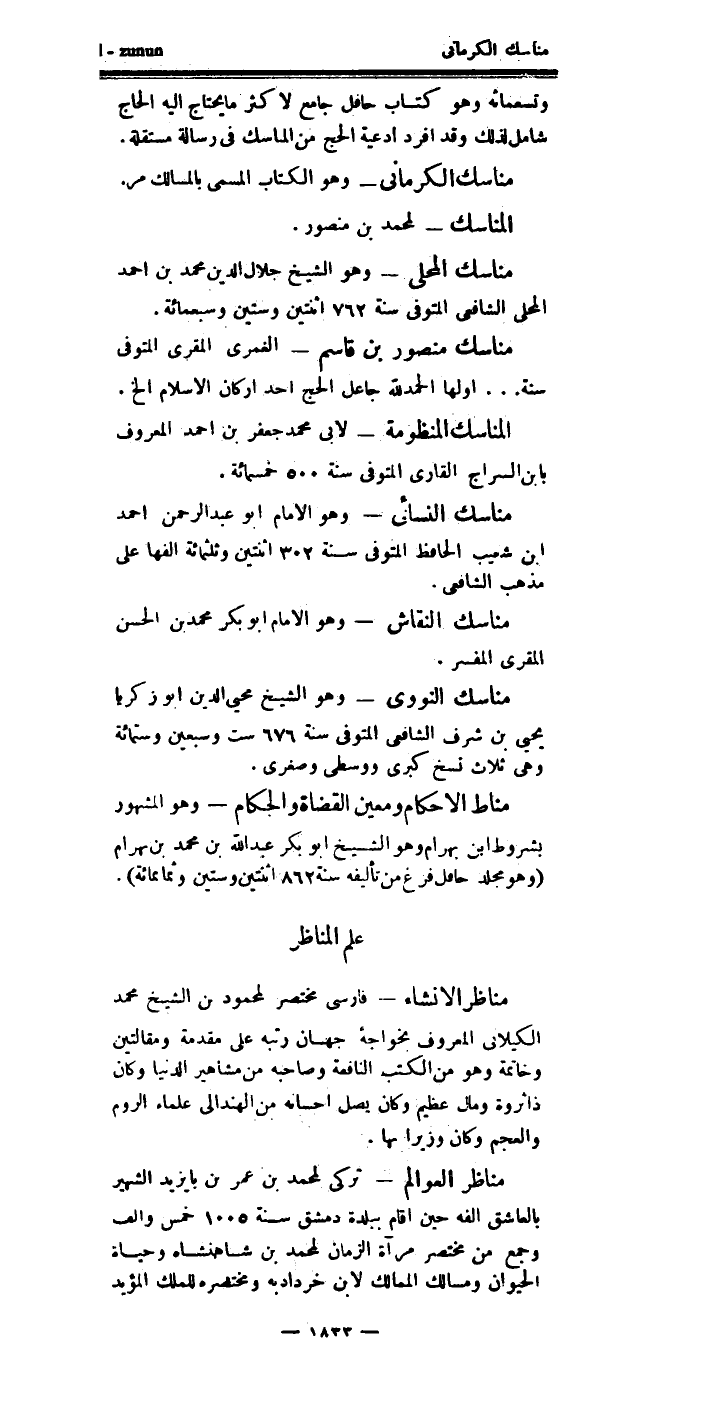 مناسك الكرمانى
I - zunun
وتسعمائه وهو كتاب حافل جامع لاكثر مايحتاج اليه الحاج
شامل لذلك وقد افرد ادعية الحج من المناسك فى رسالة مستقلة .
مناسك الكرمانى ــ وهو الكتاب المسمى بالمسالك مر.
المناسك ــ لمحمد بن منصور .
مناسك المحلى ــ وهو الشيخ جلال الدين محمد بن احمد
المحلى الشافعى المتوفى سنة ٧٦٢ اثنتين وستين وسبعمائة .
مناسك منصور بن قاسم ــ القمرى المقرى المتوفى
سنة . . . اولها الحمدلله جاعل الحج احد اركان الاسلام الخ .
المناسك المنظومة ــ لابى محمد جعفر بن احمد المعروف
بابن السراج القارى المتوفى سنة ٥٠٠ خمسمائة .
مناسك النسائى ــ وهو الامام ابو عبدالرحمن احمد
ابن شعيب الحافظ المتوفى سنة ٣٠٢ اثنتين وثلثمائة الفها على
مذهب الشافعى .
مناسك النقاش ــ وهو الامام ابو بكر محمد بن الحسن
المقرى المفسر .
مناسك النووى ــ وهو الشيخ محيى الدين ابو زكريا
يحيى بن شرف الشافعى المتوفى سنة ٦٧٦ ست وسبعين وستمائة
وهى ثلاث نسخ كبرى ووسطى وصغرى .
مناط الاحكام ومعين القضاة والحكام ــ وهو المشهور
بشروط ابن بهرام وهو الشيخ ابو بكر عبدالله بن محمد بن بهرام
(وهو مجلد حافل فرغ من تأليفه سنة ٨٦٢ اثنتين وستين وثمانمائة) .
علم المناظر
مناظر الانشاء ــ فارسى مختصر لمحمود بن الشيخ محمد
الكيلانى المعروف بخواجة جهان رتبه على مقدمة ومقالتين
وخاتمة وهو من الكتب النافعة وصاحبه من مشاهير الدنيا وكان
ذا ثروة ومال عظيم وكان يصل احسانه من الهند الى علماء الروم
والعجم وكان وزيرا بها .
مناظر العوالم ــ تركى لمحمد بن عمر بن بايزيد الشهير
بالعاشق الفه حين اقام ببلدة دمشق سنة ١٠٠٥ خمس والف
وجمع من مختصر مرآة الزمان لمحمد بن شاهنشاه وحياة
الحيوان ومسالك الممالك لابن خردادبه ومختصره للملك المؤيد
— ١٨٣٣ —